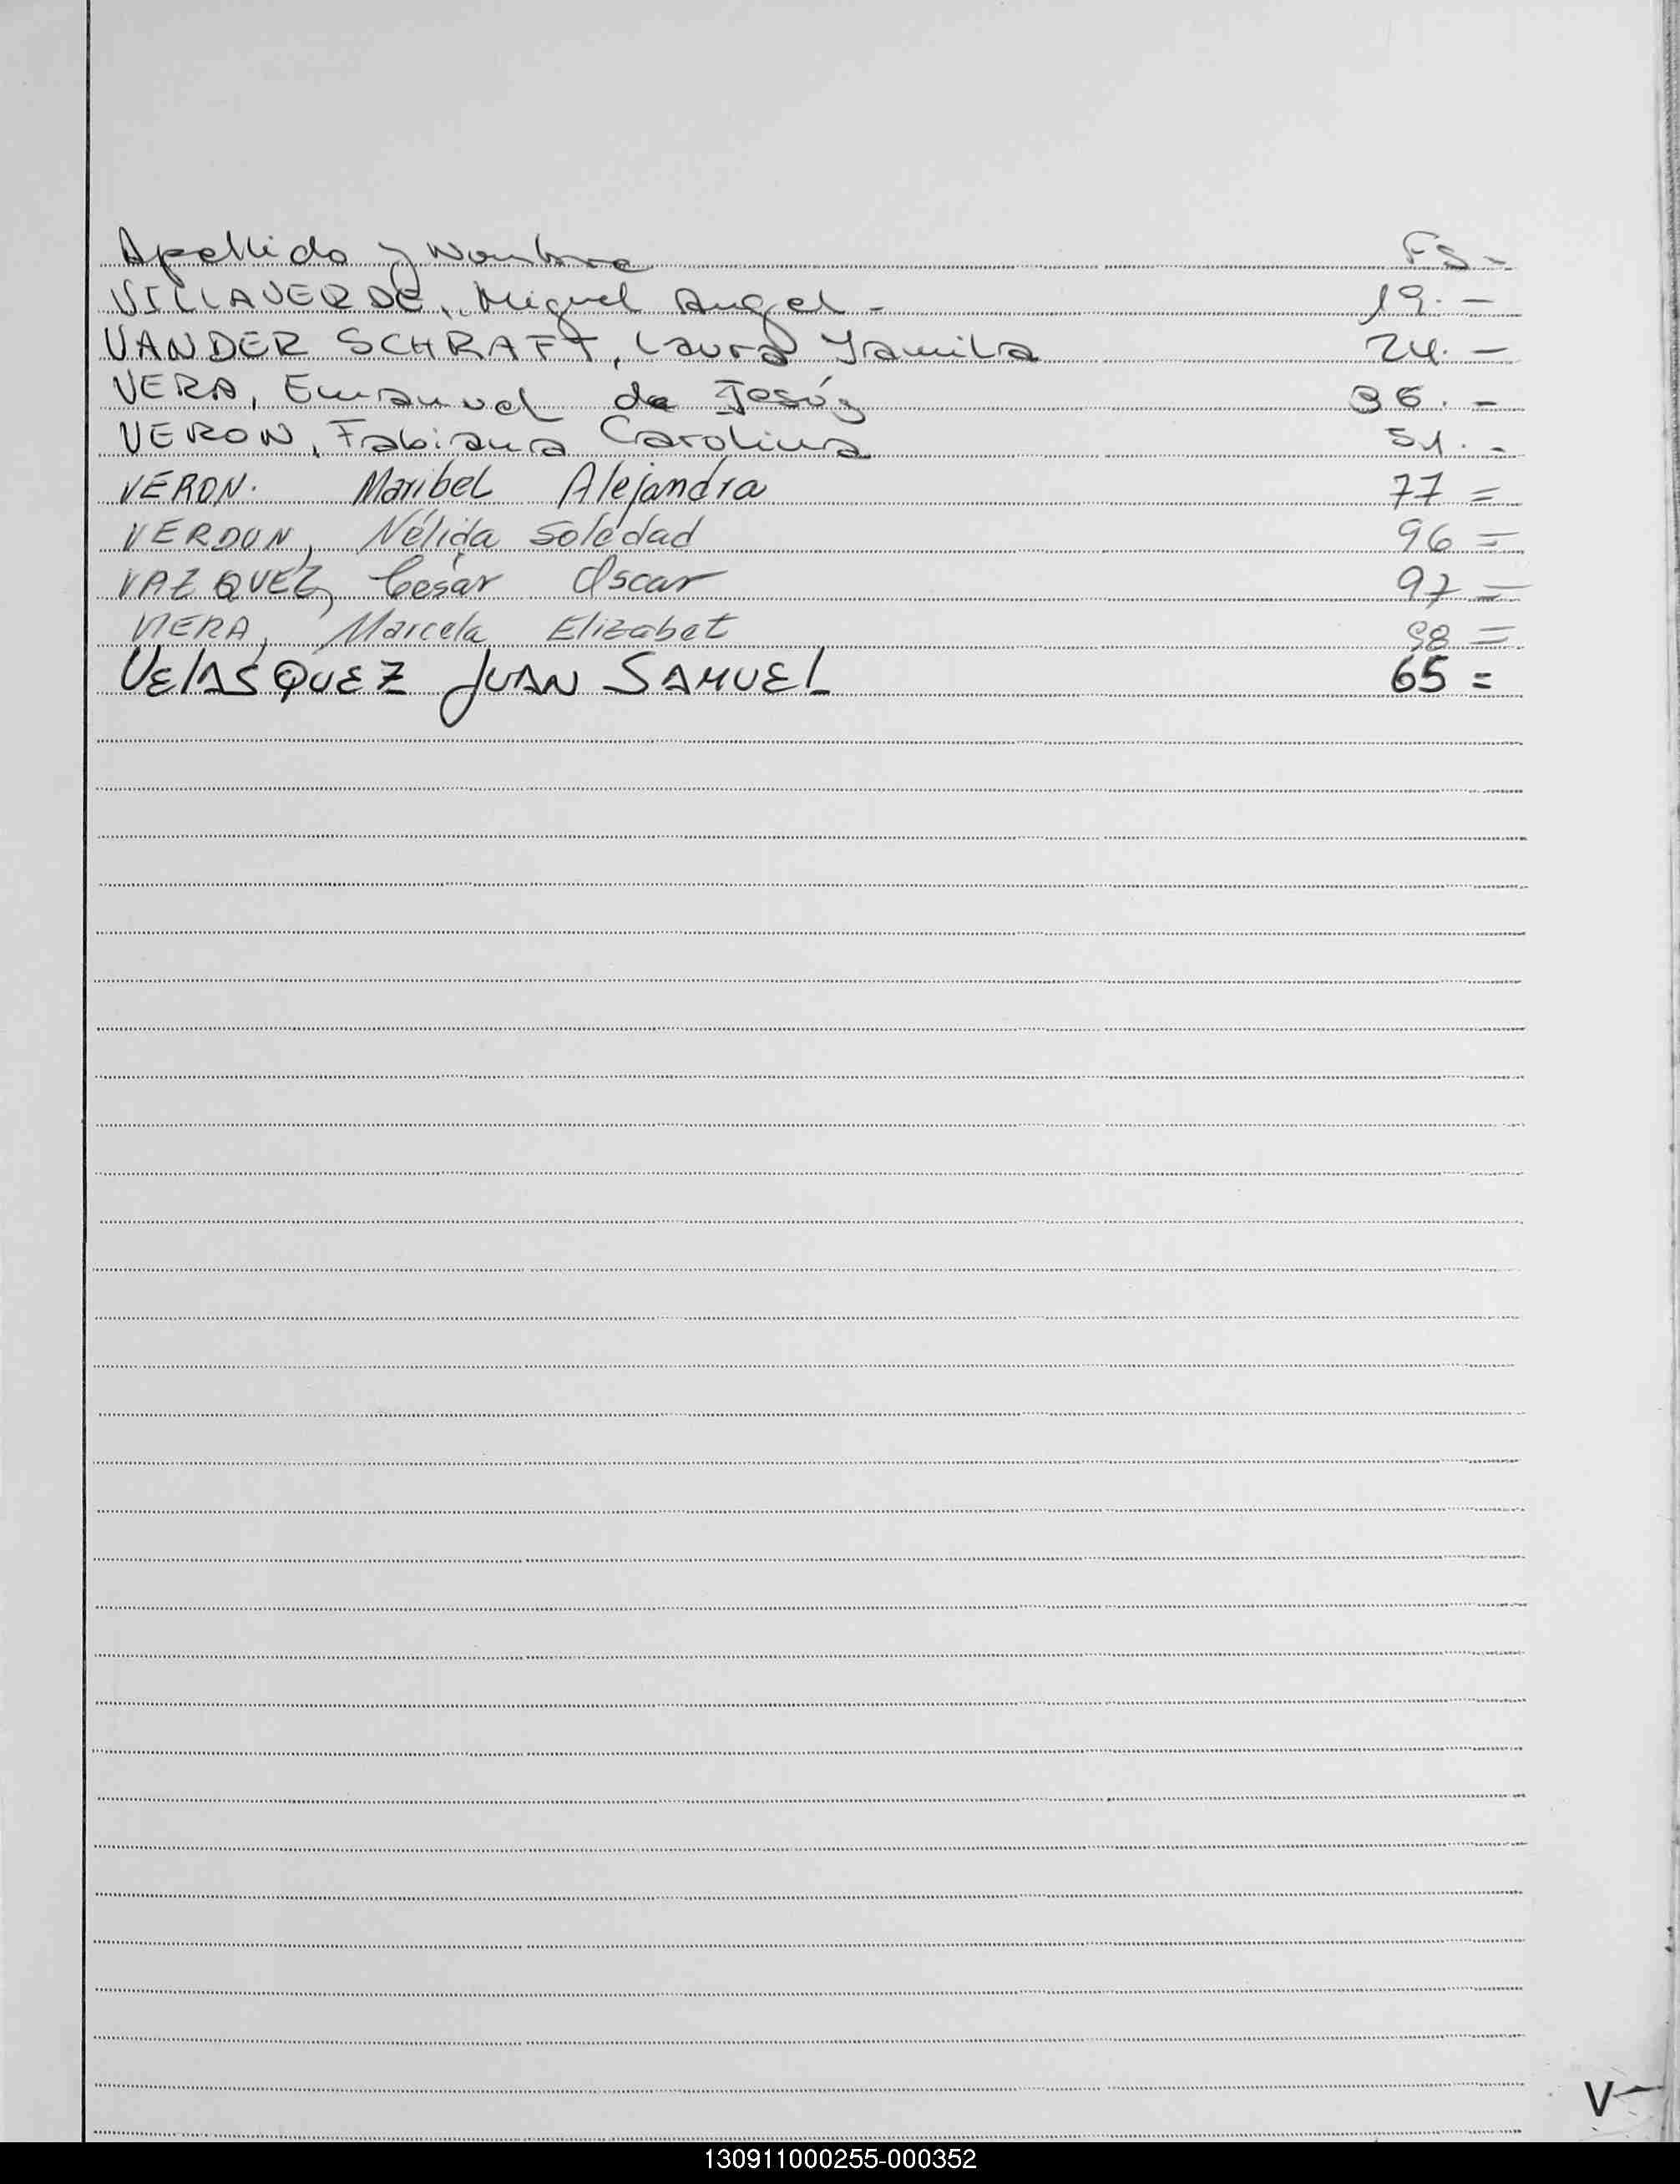 Apellido y Nombre Fs-
VILLAVERDE, Miguel Angel - 19. -
VANDER SCHRAFT, Laura Yamila 24. -
VERA, Emanuel de Jesús 36. -
VERON, Fabiana Carolina 51. -
VERON. Maribel Alejandra 77 =
VERDUN, Nélida Soledad 96 =
VAZQUEZ, César Oscar 97 =
VIERA, Marcela Elizabet 98 =
VELASQUEZ JUAN SAMUEL 65 =
V
130911000255-000352